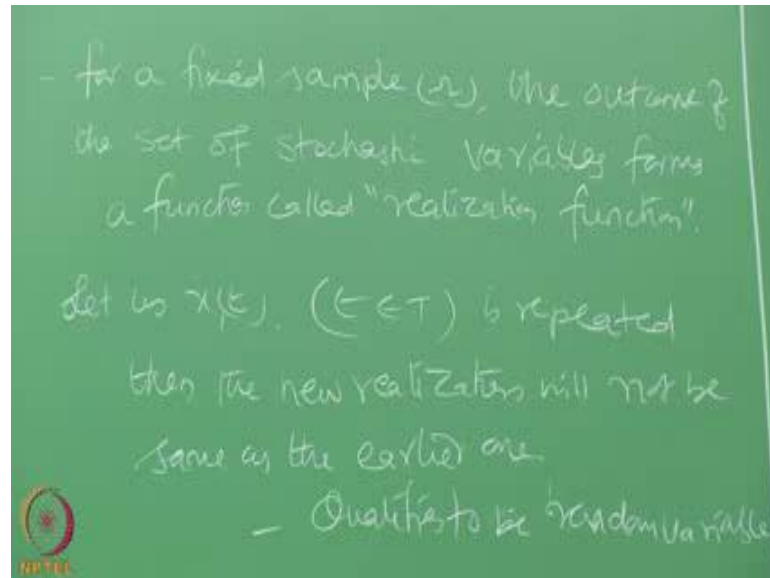 - for a fixed sample (Ω), the outcome of
the set of stochastic variables forms
a function called "realization function".
Let us x(t), (t ∈ T) is repeated
then the new realization will not be
same as the earlier one
- Qualifies to be random variable
NPTEL